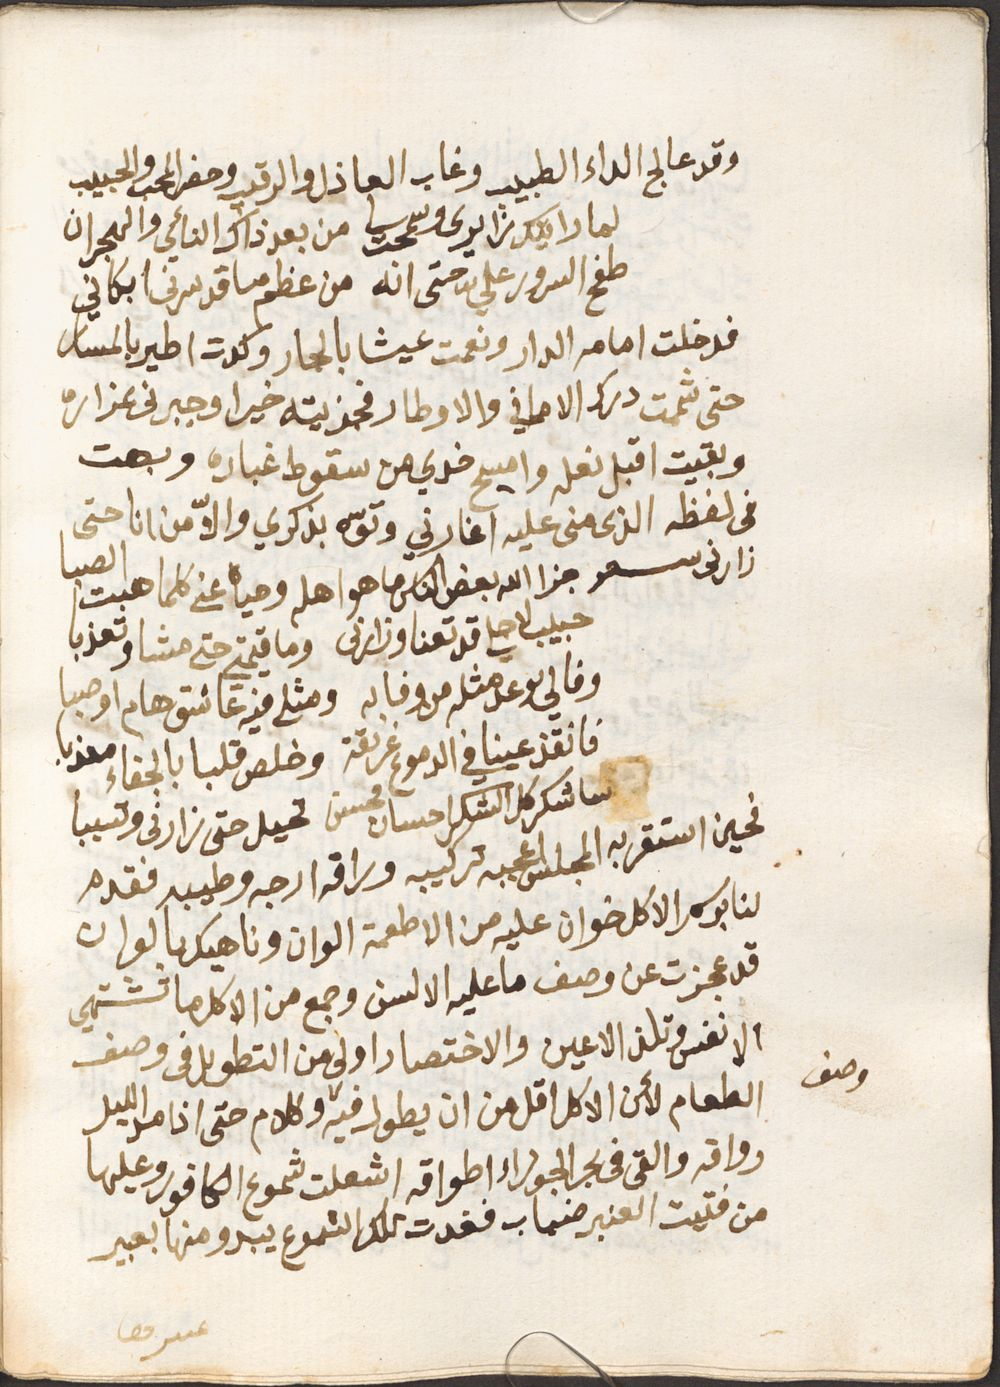 وقد عالج الداء الطبيب وغاب العاذل والرقيب وحضر المحب والحبيب
لما رايتك زايري وسمحت من بعد ذاك النائي والهجران
طفح السرور علي حتى انه من عظم ما قد سرني ابكاني
فدخلت امامه الدار ونعمت عيشا بالجار وكدت اطير بالمسار
حتى شمت درك الاماني والاوطار فجزيته خيرا وجبرني بمزاره
وبقيت اقبل نعله وامسح خدي من سقوط غباره وبهت
في لفظه الذي منى عليه اغارني وتوه بذكري والاّ من انا حتى
زارني شعر جزا الله بعض الناس ما هو اهله وحياه عني كلما هبت الصبا
حبيب لاجلي قد تعنا وزارني وما قيمتي حتى مشا وتعذبا
وفا لي بوعد مثله من وفا به ومثلي فيه عاشق هام او صبا
فانقذ عينا في الدموع غريقة وخلص قلبا بالجفاء معذبا
ساشكر كل الشكر احسان محسن تحيل حتى زارني وتسببا
فحين استقر به المجلس اعجبه تركيبه وراقه ارجه وطيبه فقدم
لنا الاكل خوان عليه من الاطعمة الوان وناهيك بالوان
قد عجزت عن وصف ما عليه الالسن وجمع من الاكل ما تشتهي
الانفس وتلذ الاعين والاختصار اولى من التطويل في وصف
وصف
الطعام لأن الاكل اقل من ان يطول فيه وكلام حتى اذا مد الليل
رواقه والقى في بحر الجوزاء اطواقه اشعلت شموع الكافور وعليها
من فتيت العنبر ضباب فغدت تلك الشموع يبدو منها بعبير